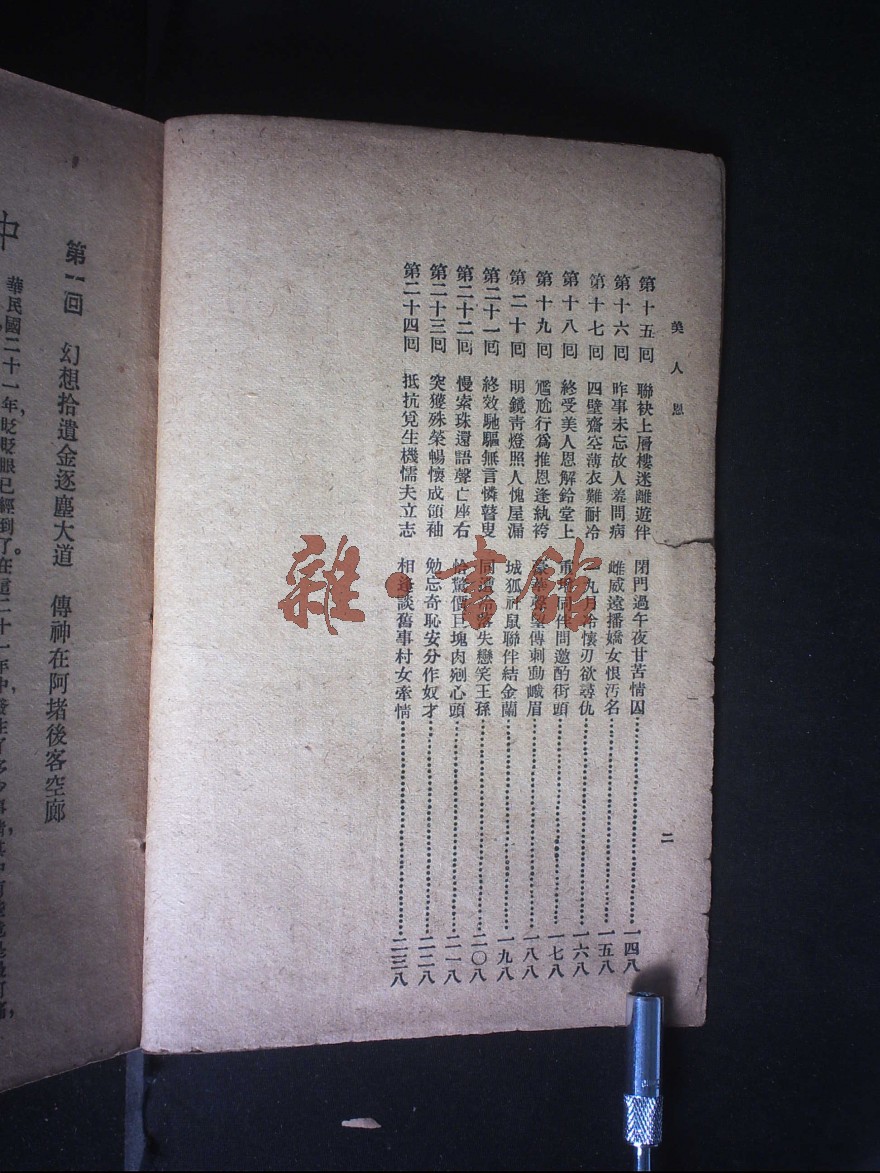 美人恩
二
第十五囘 聯袂上層樓迷離遊伴 閉門過午夜甘苦情囚 一四八
第十六囘 昨事未忘故人羞問病 雌威遠播嬌女恨汚名 一五八
第十七囘 四壁齋空薄衣難耐冷 九月冷懷刃欲尋仇 一六八
第十八囘 終受美人恩解鈴堂上 同伴問邀酌街頭 一七八
第十九囘 尷尬行爲推恩逢紈袴 傳刺動蛾眉 一八八
第二十囘 明鏡靑燈照人愧屋漏 城狐社鼠聯伴結金蘭 一九八
第二十一囘 終效馳驅無言憐瞽叟 同遭冷落失戀笑王孫 二〇八
第二十二囘 慢索珠還語聲亡座右 恰驚價巨塊肉剜心頭 二一八
第二十三囘 突獲殊榮暢懷成領袖 勉忘奇恥安分作奴才 二二八
第二十四囘 抵抗覓生機懦夫立志 相逢談舊事村女牽情 二三八
第一回 幻想拾遺金逐塵大道 傳神在阿堵後客空廊
中
華民國二十一年，眨眨眼已經到了。在這二十一年中，發生了多少事情，
雜·書館